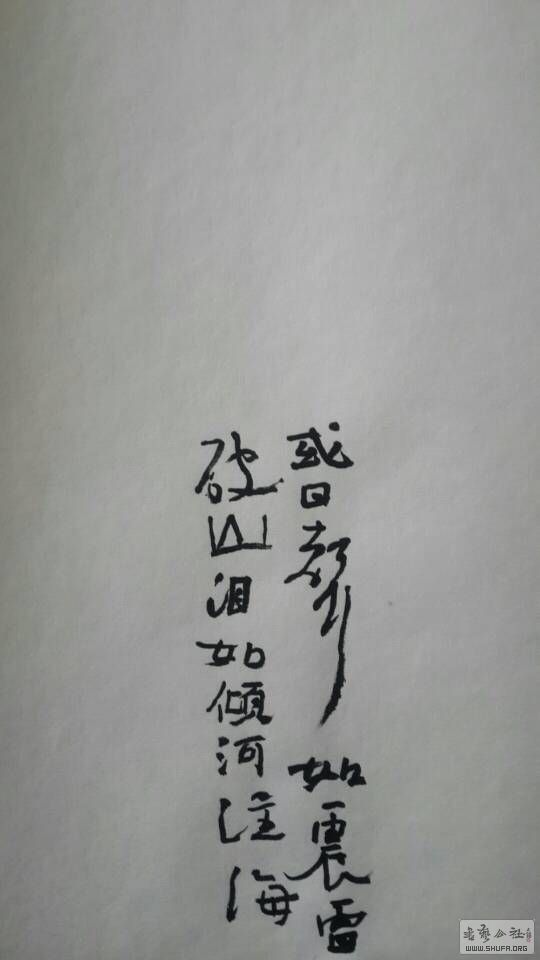 或曰声如震雷
破山泪如倾河注海
书艺公社
WWW.SHUFA.ORG